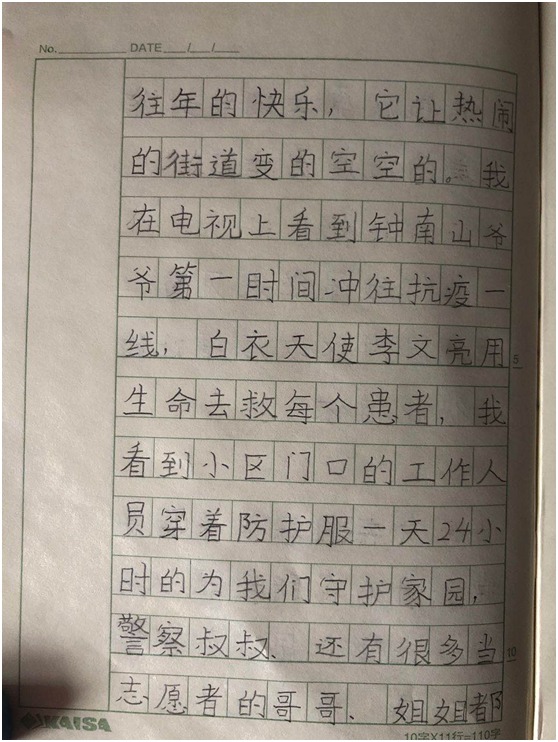 No. DATE / /
往年的快乐，它让热闹
的街道变的空空的。我
在电视上看到钟南山爷
爷第一时间冲往抗疫一
线，白衣天使李文亮用
5
生命去救每个患者，我
看到小区门口的工作人
员穿着防护服一天24小
时的为我们守护家园，
警察叔叔、还有很多当
10
志愿者的哥哥、姐姐都
KAISA
10字X11行=110字